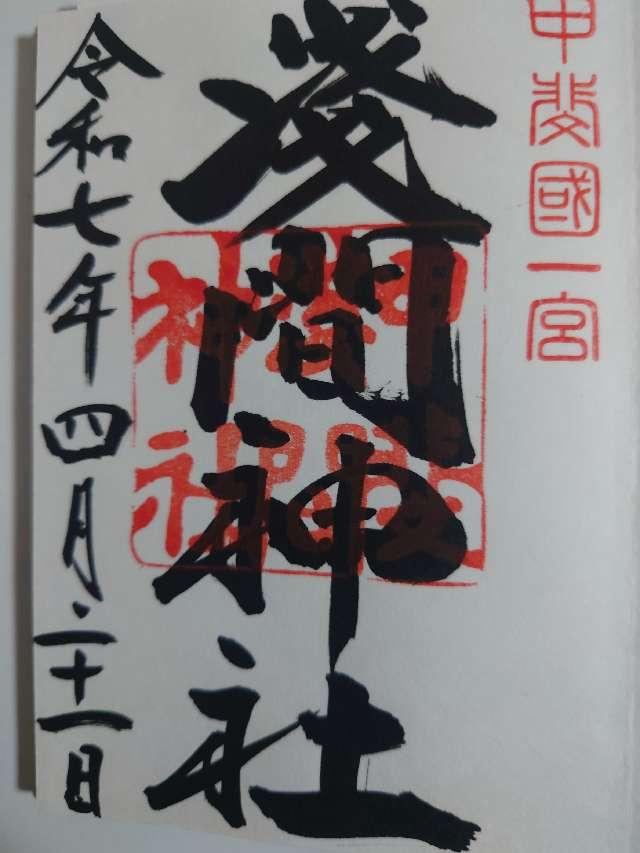 甲斐國一宮
淺間神社
令和七年四月二十一日